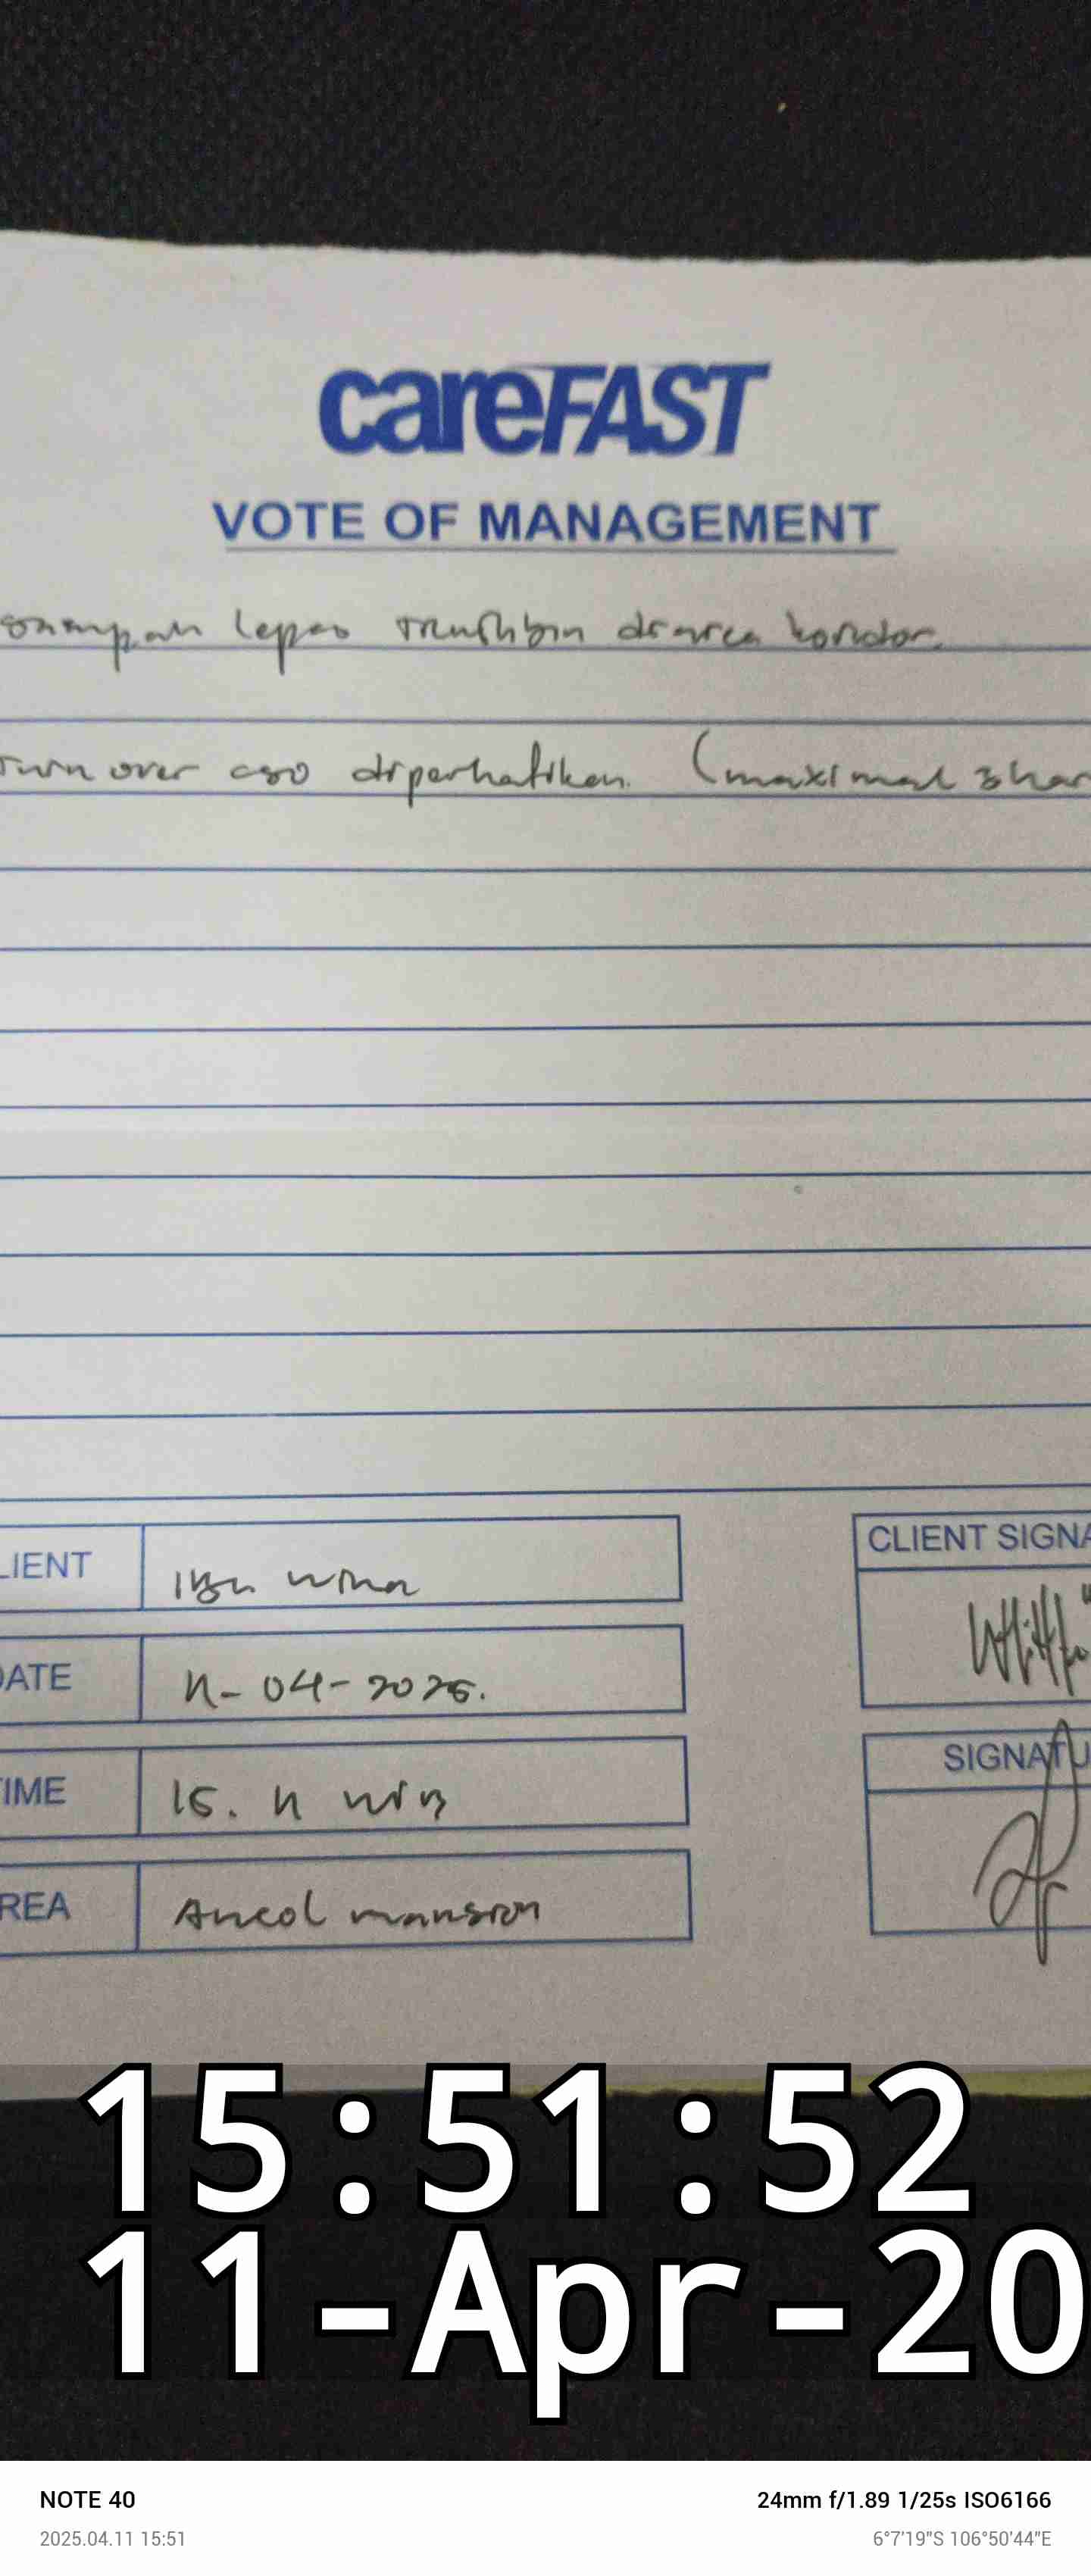 careFAST
VOTE OF MANAGEMENT
lepas diarea koridor.
Turn over cso diperhatikan. (maximal 3 har
LIENT Ibu wina
DATE 11-04-2025.
TIME 15. 11 WIB
REA Ancol mansion
CLIENT SIGNA
SIGNATU
15:51:52
11-Apr-20
NOTE 40
24mm f/1.89 1/25s ISO6166
2025.04.11 15:51
6°7'19"S 106°50'44"E